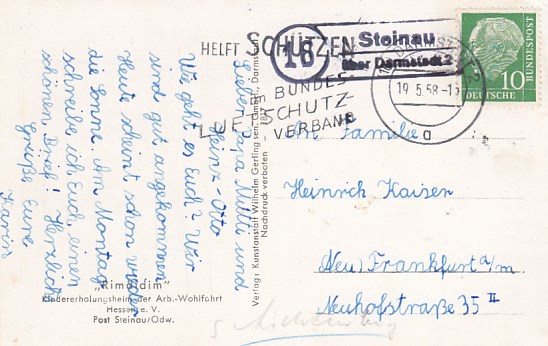 Lieber Papa Mutti und
Heinz-Otto
Wie geht es Euch? Wir
sind gut angekommen
Heute scheint schon wieder
die Sonne. Am Montag
schreibe ich Euch einen
schönen Brief! Herzlich
Grüße Eure
Karin
"Rimaldim"
Kindererholungsheim der Arb.-Wohlfahrt
Hessen e. V.
Post Steinau/Odw.
Verlag: Kunstanstalt Wilhelm Gerling sen. GmbH., Darmst
Nachdruck verboten
HELFT SCHÜTZEN
IM BUNDES-
LUFTSCHUTZ-
VERBAND
16
Steinau
über Darmstadt 2
19.5.58-15
a
DEUTSCHE
BUNDESPOST
10
An Familie
Heinrich Kaiser
(Neu) Frankfurt a/m
Neuhofstraße 35 II